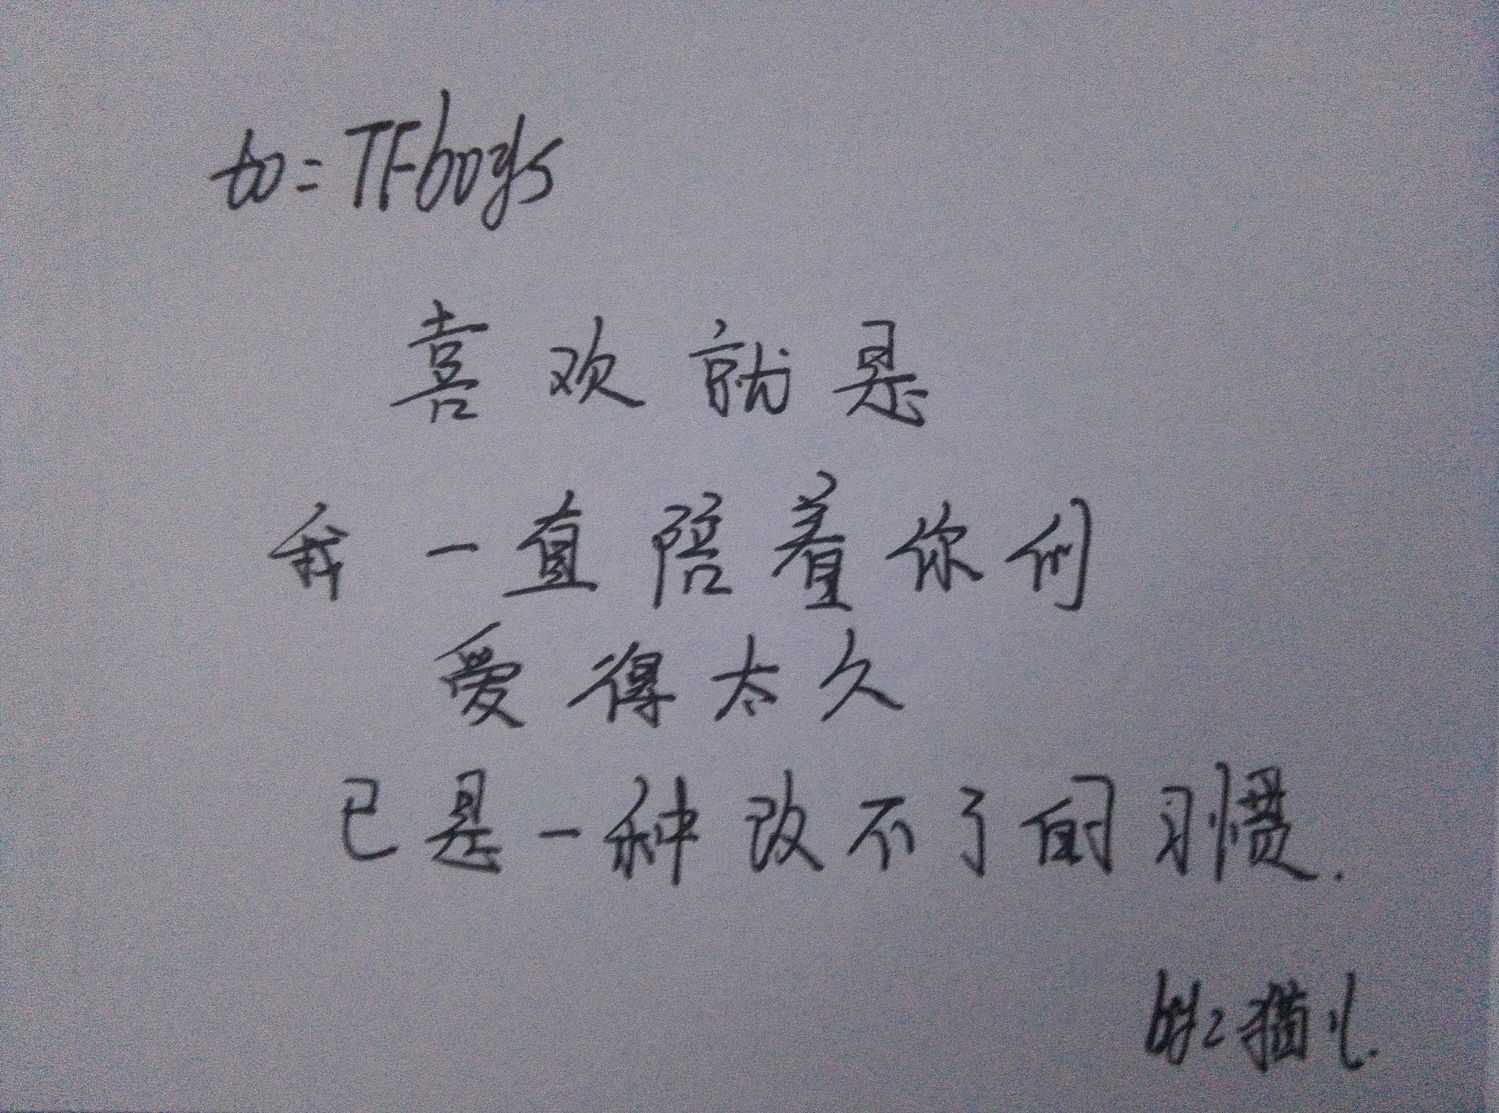 to: TFboys
喜欢就是
我一直陪着你们
爱得太久
已是一种改不了的习惯.
by: 猫儿.